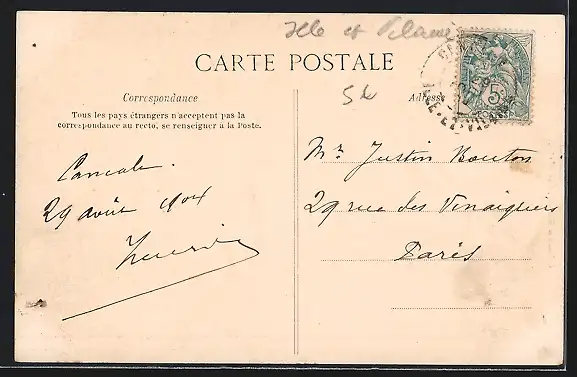 Ille et Vilaine
CARTE POSTALE
5t
Correspondance
Adresse
Tous les pays étrangers n'acceptent pas la
correspondance au recto, se renseigner à la Poste.
ILLE-ET-VILAINE
5
Cancale.
29 août 1904
Mr Justin Bouton
29 rue des Vinaigriers
Paris